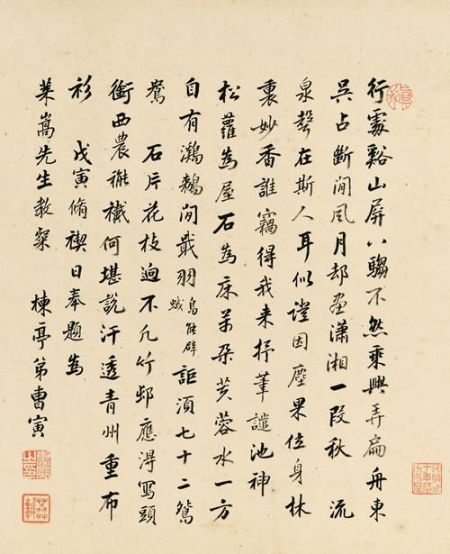 行窩谿山屏八騶不然乘興弄扁舟東
吳占斷閒風月却畫瀟湘一段秋 流
泉聲在斯人耳似證因塵果位身林
裏妙香誰竊得我来抒筆譴池神
松蘿為屋石為床萬朵芙蓉水一方
自有鸂鶒閒戢羽鳥能辟蜮詎須七十二鴛
鴦 石片花枝迥不凡竹邨應得寫頭
銜西農襶何堪說汗透青州重布
衫 戊寅脩禊日奉題為
萊嵩先生教粲 楝亭弟曹寅